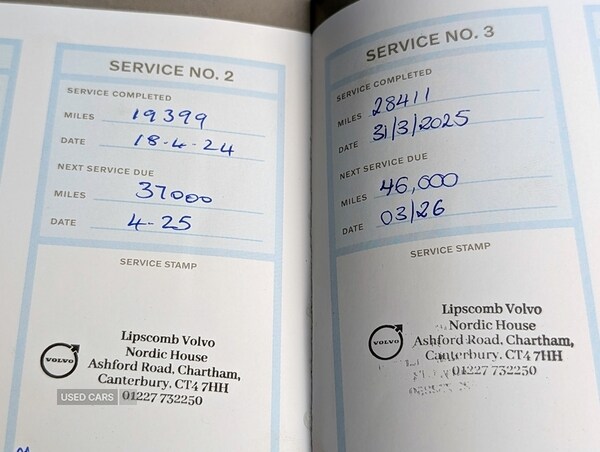 SERVICE NO. 2
SERVICE COMPLETED
MILES 19399
DATE 18-4-24
NEXT SERVICE DUE
MILES 37000
DATE 4-25
SERVICE STAMP
VOLVO
Lipscomb Volvo
Nordic House
Ashford Road, Chartham,
Canterbury. CT4 7HH
01227 732250
USED CARS
SERVICE NO. 3
SERVICE COMPLETED
MILES 28411
DATE 31/3/2025
NEXT SERVICE DUE
MILES 46,000
DATE 03/26
SERVICE STAMP
VOLVO
Lipscomb Volvo
Nordic House
Ashford Road, Chartham,
Canterbury. CT4 7HH
01227 732250